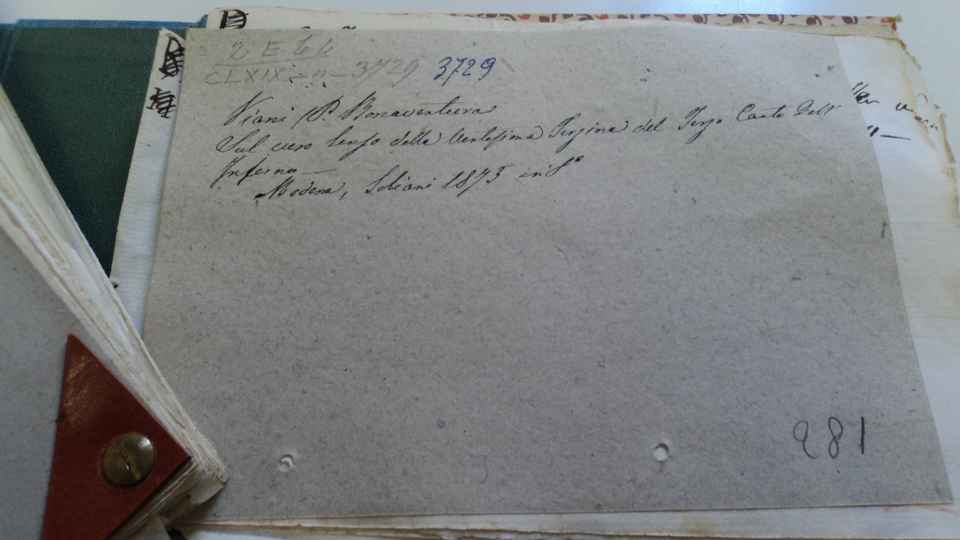 2 E 44
CLXIX - n - 3729 3729
Viani P. Bonaventura
Sul vero senso della ventesima Terzina del Terzo Canto Dell'
Inferno
Modena, Soliani 1875 in 8°
281